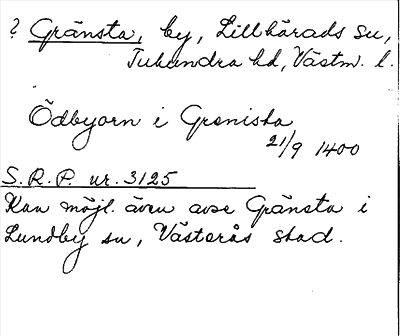 ? Gränsta, by, Lillhärads su,
Tuhundra hd, Västm. l.
Ödbyorn i Grenista
21/9 1400
S.R.P. nr. 3125
Kan möjl. även avse Gränsta i
Lundby sn, Västerås stad.